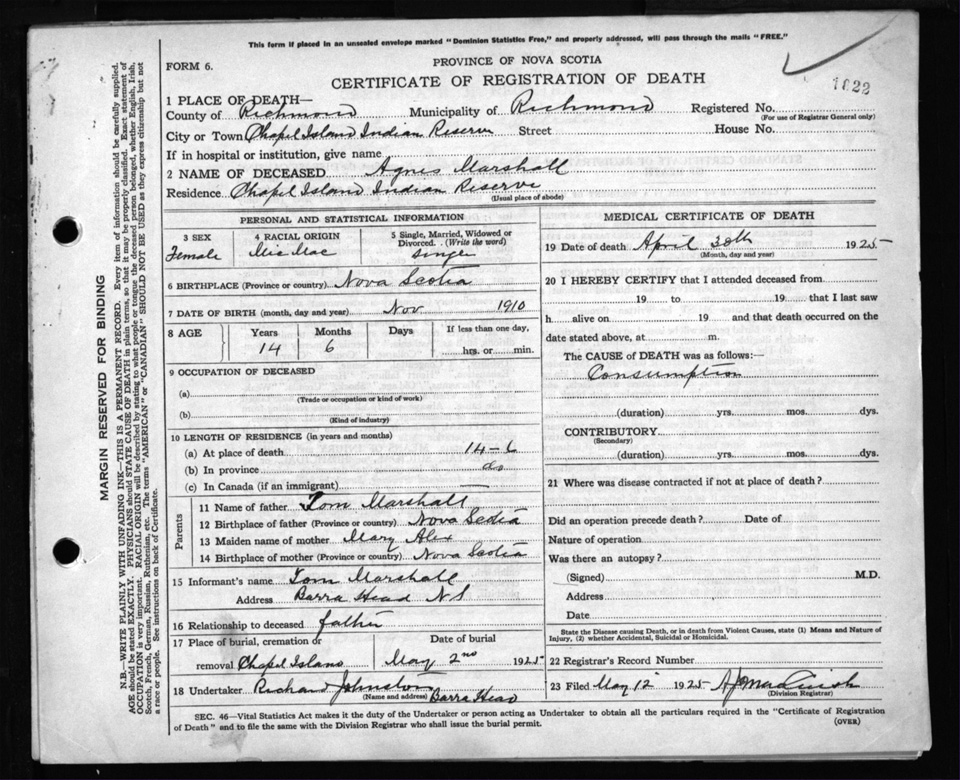 This form if placed in an unsealed envelope marked "Dominion Statistics Free," and properly addressed, will pass through the mails "FREE."
FORM 6.
PROVINCE OF NOVA SCOTIA
CERTIFICATE OF REGISTRATION OF DEATH
1622
1 PLACE OF DEATH—
County of Richmond Municipality of Richmond Registered No.
(For use of Registrar General only)
City or Town Chapel Island Indian Reserve Street House No.
If in hospital or institution, give name
2 NAME OF DECEASED Agnes Marshall
Residence Chapel Island Indian Reserve
(Usual place of abode)
PERSONAL AND STATISTICAL INFORMATION
3 SEX 4 RACIAL ORIGIN 5 Single, Married, Widowed or Divorced. (Write the word)
Female Mic Mac Single
6 BIRTHPLACE (Province or country) Nova Scotia
7 DATE OF BIRTH (month, day and year) Nov 1910
8 AGE Years Months Days If less than one day,
14 6 hrs. or min.
9 OCCUPATION OF DECEASED
(a)
(Trade or occupation or kind of work)
(b)
(Kind of industry)
10 LENGTH OF RESIDENCE (in years and months)
(a) At place of death 14-6
(b) In province do
(c) In Canada (if an immigrant) —
Parents
11 Name of father Tom Marshall
12 Birthplace of father (Province or country) Nova Scotia
13 Maiden name of mother Mary Alex
14 Birthplace of mother (Province or country) Nova Scotia
15 Informant's name Tom Marshall
Address Barra Head N S
16 Relationship to deceased father
17 Place of burial, cremation or Date of burial
removal Chapel Island May 2nd 1925
18 Undertaker Richard Johnston
(Name and address) Barra Head
MEDICAL CERTIFICATE OF DEATH
19 Date of death April 30th 1925
(Month, day and year)
20 I HEREBY CERTIFY that I attended deceased from
19 to 19 that I last saw
h alive on 19 and that death occurred on the
date stated above, at m.
The CAUSE of DEATH was as follows:—
Consumption
(duration) yrs. mos. dys.
CONTRIBUTORY
(Secondary)
(duration) yrs. mos. dys.
21 Where was disease contracted if not at place of death?
Did an operation precede death? Date of
Nature of operation
Was there an autopsy?
(Signed) M.D.
Address
Date
State the Disease causing Death, or in death from Violent Causes, state (1) Means and Nature of
Injury, (2) whether Accidental, Suicidal or Homicidal.
22 Registrar's Record Number
23 Filed May 12 1925
(Division Registrar)
SEC. 46—Vital Statistics Act makes it the duty of the Undertaker or person acting as Undertaker to obtain all the particulars required in the "Certificate of Registration
of Death" and to file the same with the Division Registrar who shall issue the burial permit.
(OVER)
MARGIN RESERVED FOR BINDING
N.B.—WRITE PLAINLY WITH UNFADING INK—THIS IS A PERMANENT RECORD. Every item of information should be carefully supplied.
AGE should be stated EXACTLY. PHYSICIANS should STATE CAUSE OF DEATH in plain terms, so that it may be properly classified. Exact statement of
OCCUPATION is very important. RACIAL ORIGIN will be described by stating to what people or tongue the deceased person belonged, whether English, Irish,
Scotch, French, German, Russian, Ruthenian, etc. The terms "AMERICAN" or "CANADIAN" SHOULD NOT BE USED as they express citizenship but not
a race or people. See instructions on back of Certificate.